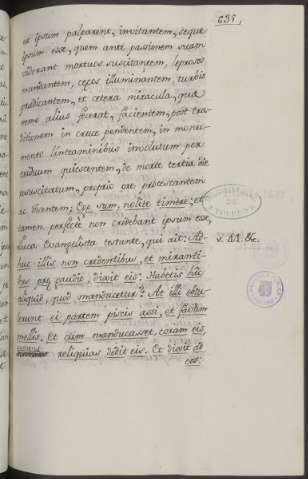 635,
et ipsum palparent, invitantem, seque
ipsum esse, quem ante passionem suam
viderant mortuos suscitantem, leprosos
mundantem, cæcos illuminantem, turbis
prædicantem, et cetera miracula, quæ
nemo alius fecerat, facientem, post tra-
ditionem in cruce pendentem, in monu-
mento linteaminibus involutum per
triduum quiescentem, de morte tertia die
resuscitatum, proprio ore protestantem
ac dicentem: Ego sum, nolite timere: et
tamen perfecte non credebant ipsum esse
Luca Evangelista testante, qui ait: Ad-
huc illis non credentibus, et miranti-
bus præ gaudio, dixit eis: Habetis hic
aliquid, quod manducetur? At illi obtu-
lerunt ei partem piscis assi, et favum
mellis. Et cum manducasset, coram eis
reliquias dedit eis. Et dixit ad
eos: